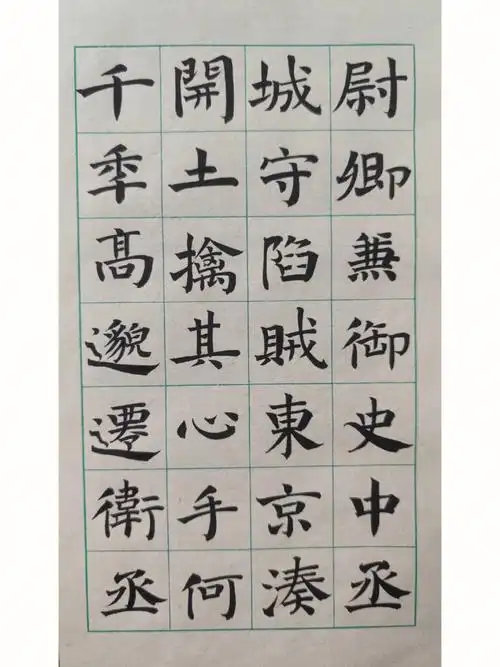 尉卿兼御史中丞
城守陷賊東京湊
開土擒其心手何
千秊髙邈遷衛丞